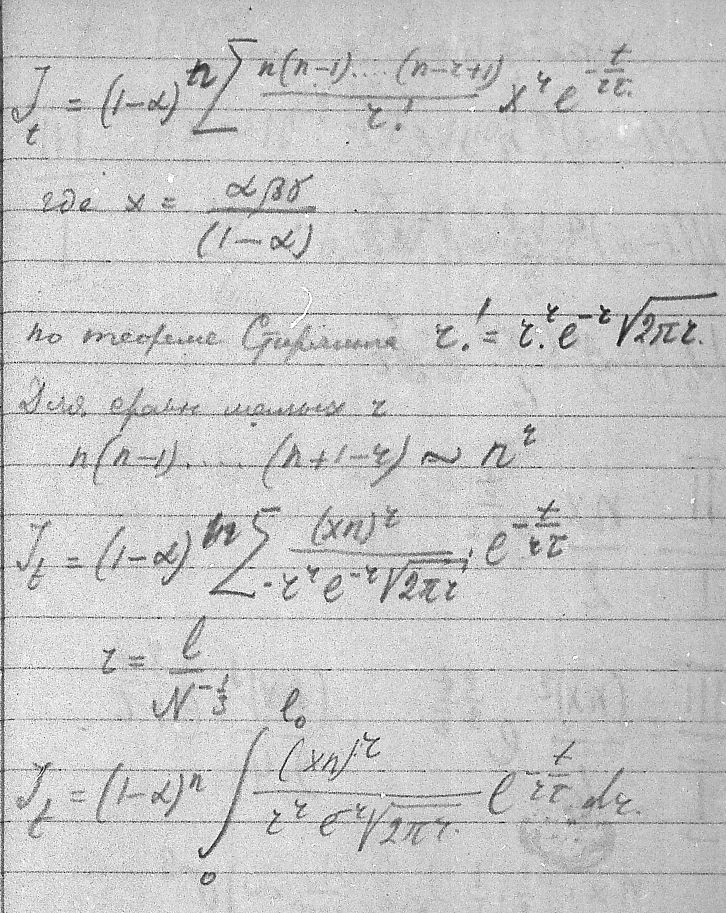 J_t = (1-α)^n Σ n(n-1)....(n-r+1) / r! x^r e^{-t/rτ}
где x = αβγ / (1-α)
по теореме Стирлинга r! = r^r e^{-r} √2πr.
Для сравн малых r
n(n-1)..... (n+1-r) ~ n^r
J_t = (1-α)^n Σ (xn)^r / r^r e^{-r} √2πr · e^{-t/rτ}
r = l / N^{-1/3}
J_t = (1-α)^n ∫_0^{l_0} (xn)^r / r^r e^{-r} √2πr · e^{-t/rτ} dr.